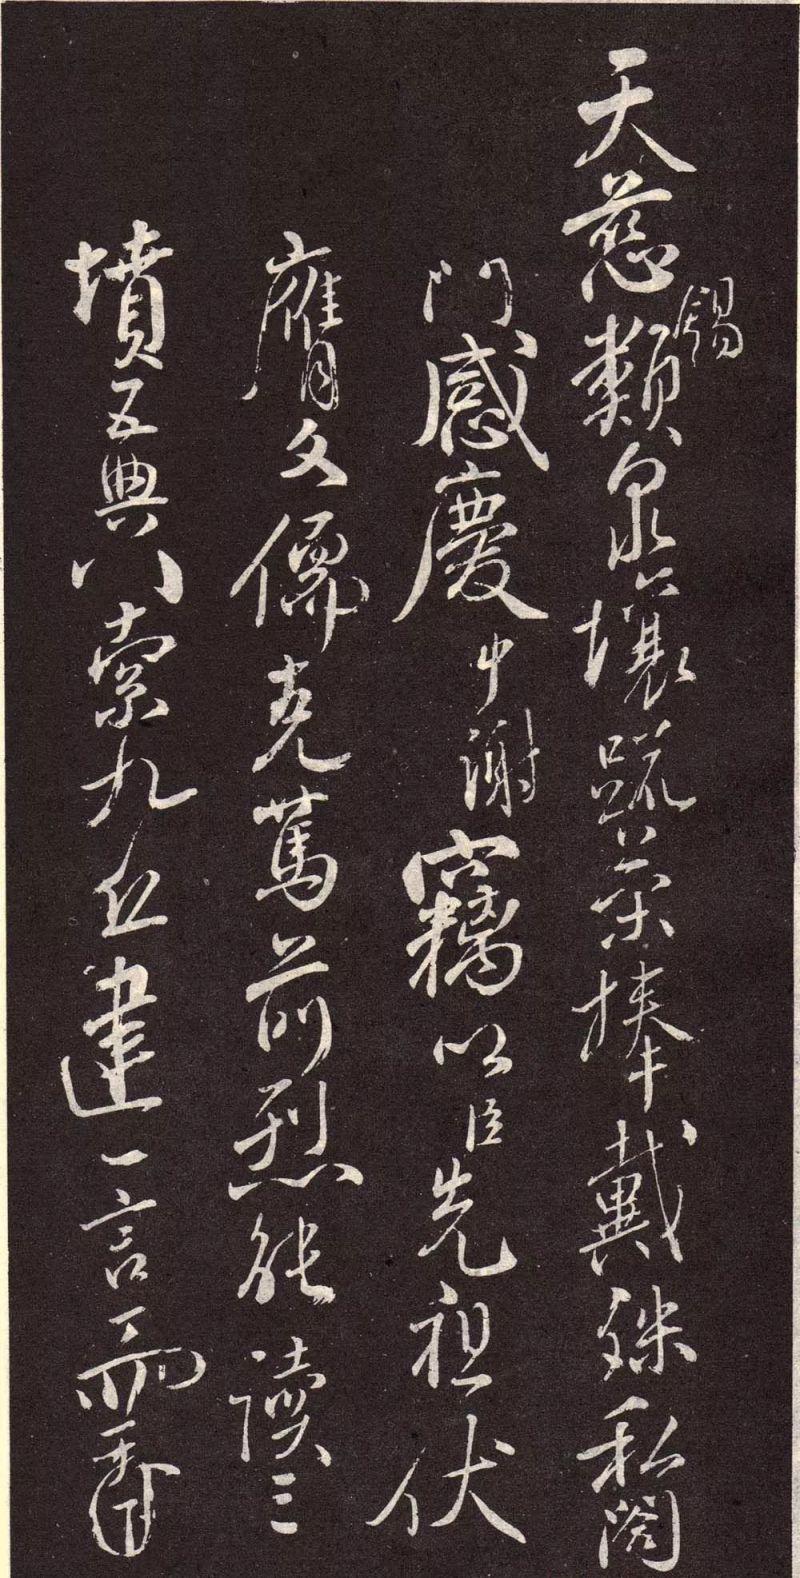 天慈錫類泉壤疏榮捧戴殊私闔
門感慶中謝竊以臣先祖伏
膺文儒克篤前烈能讀三
墳五典八索九丘建一言